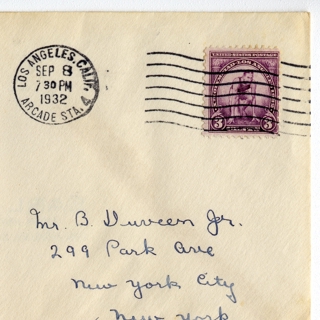 LOS ANGELES, CALIF.
SEP 8
7 30 PM
1932
ARCADE STA.
UNITED STATES POSTAGE
3 3
Mr. B. Duveen Jr.
299 Park Ave
New York City
New York